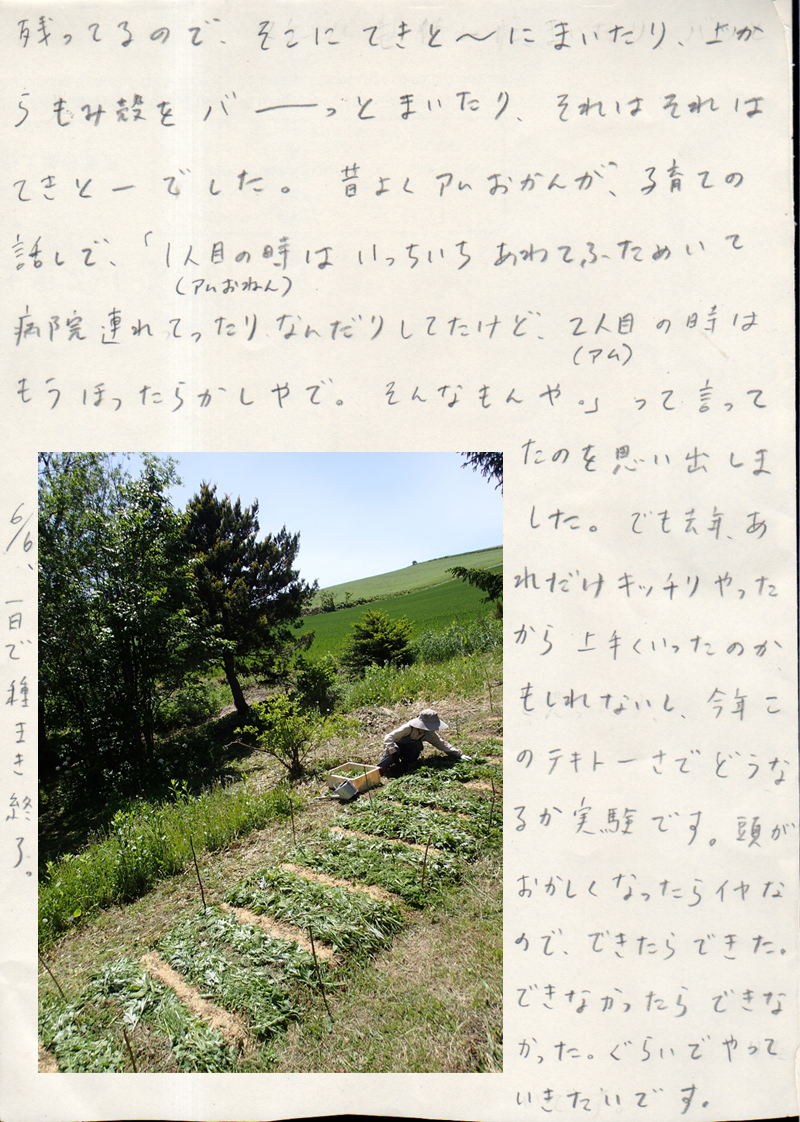 残ってるので、そこにてきと〜にまいたり、上か
らもみ殻をバーーっとまいたり、それはそれは
てきとーでした。昔よくアムおかんが、子育ての
話しで、「1人目の時はいっちいちあわてふためいて
(アムおねん)
病院連れてったりなんだりしてたけど、2人目の時は
(アム)
もうほったらかしやで。そんなもんや。」って言って
たのを思い出しま
した。でも去年、あ
れだけキッチリやった
から上手くいったのか
もしれないし、今年こ
のテキトーさでどうな
るか実験です。頭が
おかしくなったらイヤな
ので、できたらできた。
できなかったらできな
かった。ぐらいでやって
いきたいです。
6/6、一日で種まき終了。